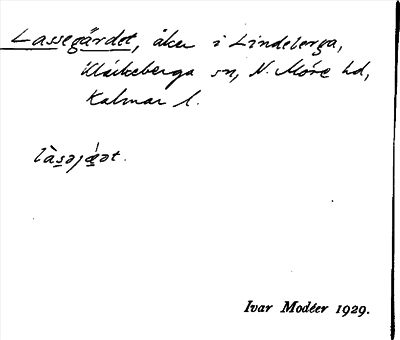 Lassegärdet, åker i Lindeberga,
Kläckeberga sn, N. Möre hd,
Kalmar l.
Ivar Modéer 1929.